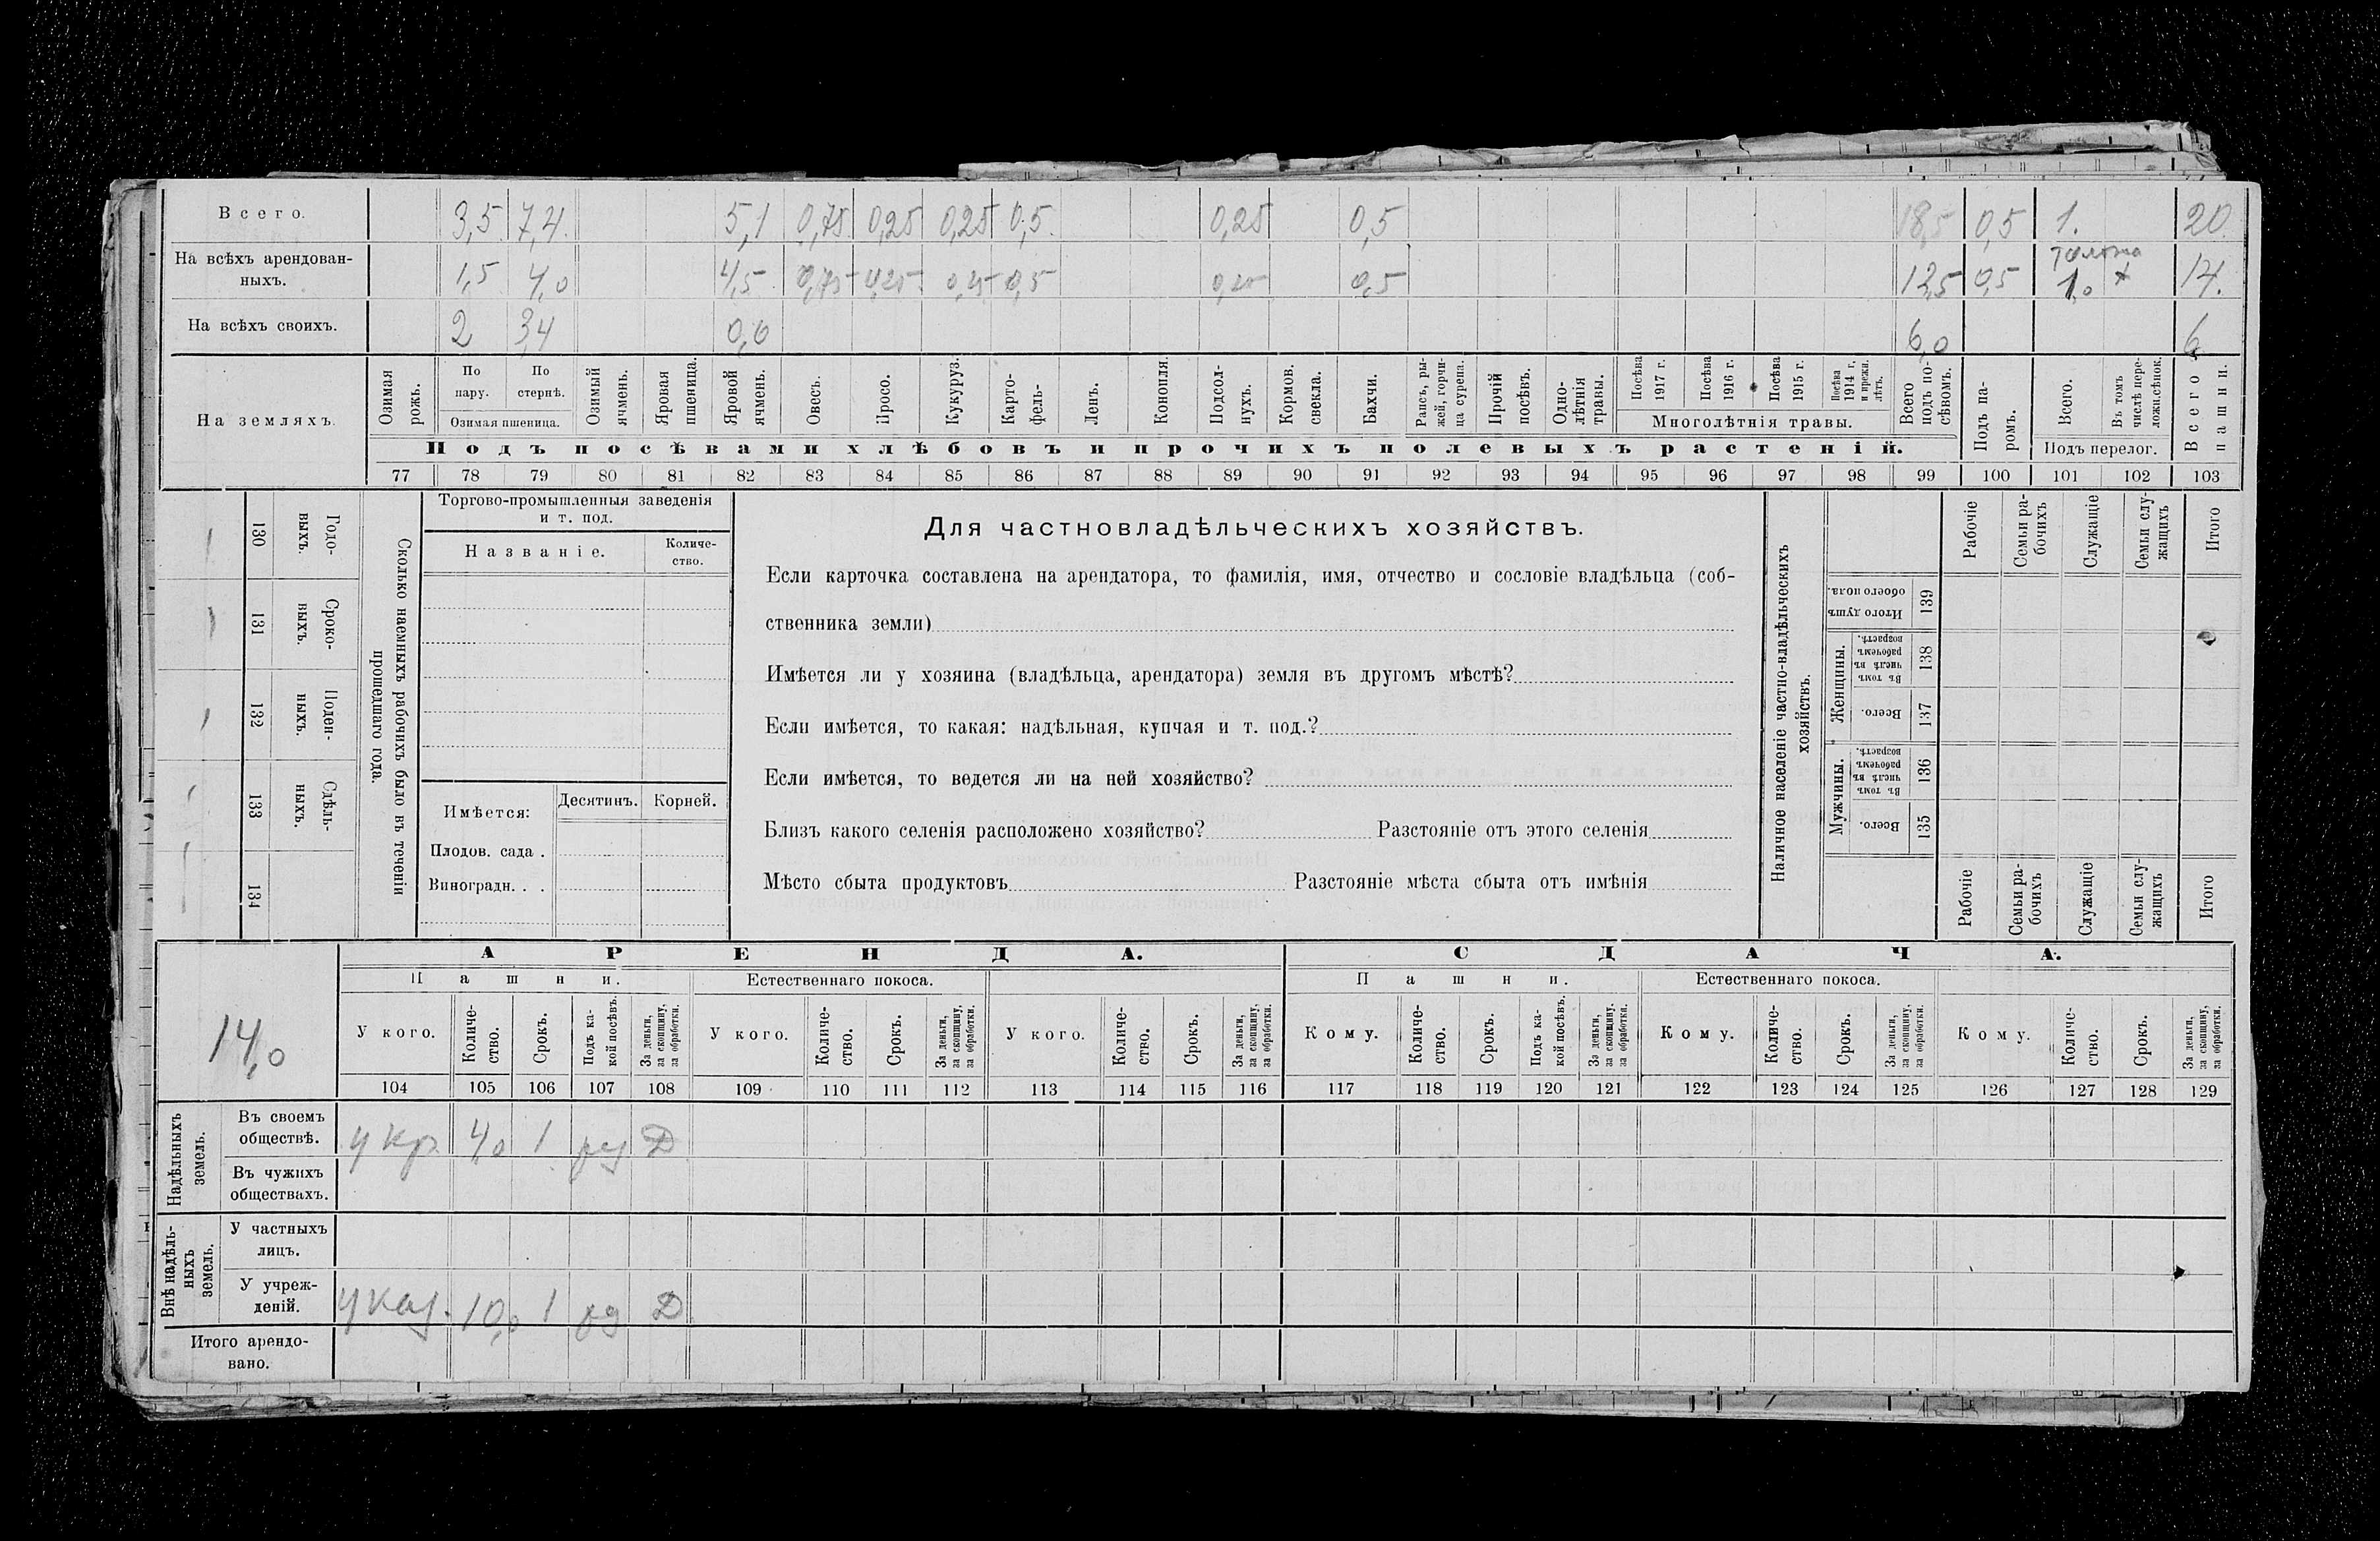 Всего. 3,5 7,4 5,1 0,75 0,25 0,25 0,5 0,25 0,5 18,5 0,5 1. 20.
толока
На всѣхъ арендован-
ныхъ. 1,5 4,0 4,5 0,75 0,25 0,25 0,5 0,25 0,5 12,5 0,5 1,0 + 14.
На всѣхъ своихъ. 2 3,4 0,6 6,0 6
На земляхъ.
Озимая рожь.
По пару.
По стернѣ.
Озимая пшеница.
Озимый ячмень.
Яровая пшеница.
Яровой ячмень.
Овесъ.
Просо.
Кукуруз.
Карто-
фель-
Ленъ.
Конопля.
Подсол-
нухъ.
Кормов. свекла.
Бахчи.
Рапсъ, ры-
жей, горчи-
ца сурепа.
Прочій посѣвъ.
Одно-
лѣтнія травы.
Посѣва 1917 г.
Посѣва 1916 г.
Посѣва 1915 г.
Посѣва 1914 г. и прежн. лѣтъ.
Многолѣтнія травы.
Всего подъ по-
сѣвомъ.
Подъ па-
ромъ.
Всего.
Въ томъ числѣ пере-
ложн.сѣнок.
Подъ перелог.
Всего пашни.
Подъ посѣвами хлѣбовъ и прочихъ полевыхъ растеній.
77 78 79 80 81 82 83 84 85 86 87 88 89 90 91 92 93 94 95 96 97 98 99 100 101 102 103
Сколько наемныхъ рабочихъ было въ теченіи
прошедшаго года.
Годо-
выхъ.
130
Сроко-
выхъ.
131
Поден-
ныхъ.
132
Сдѣль-
ныхъ.
133
134
Торгово-промышленныя заведенія
и т. под.
Названіе.
Количе-
ство.
Имѣется: Десятинъ. Корней.
Плодов. сада .
Виноградн. . .
Для частновладѣльческихъ хозяйствъ.
Если карточка составлена на арендатора, то фамилія, имя, отчество и сословіе владѣльца (соб-
ственника земли)
Имѣется ли у хозяина (владѣльца, арендатора) земля въ другомъ мѣстѣ?
Если имѣется, то какая: надѣльная, купчая и т. под.?
Если имѣется, то ведется ли на ней хозяйство?
Близъ какого селенія расположено хозяйство? Разстояніе отъ этого селенія
Мѣсто сбыта продуктовъ Разстояніе мѣста сбыта отъ имѣнія
Наличное населеніе частно-владѣльческихъ
хозяйствъ.
Рабочіе
Семьи ра-
бочихъ
Служащіе
Семьи слу-
жащихъ
Итого
Итого душъ обоего пола.
139
Женщины.
Въ томъ числѣ въ рабочемъ возрастѣ.
138
Всего.
137
Мужчины.
Въ томъ числѣ въ рабочемъ возрастѣ.
136
Всего.
135
Рабочіе
Семьи ра-
бочихъ
Служащіе
Семьи слу-
жащихъ
Итого
14,0
АРЕНДА. СДАЧА.
Пашни. Естественнаго покоса. Пашни. Естественнаго покоса.
У кого.
Количе-
ство.
Срокъ.
Подъ ка-
кой посѣвъ.
За деньги, за скопщину, за обработки.
У кого.
Количе-
ство.
Срокъ.
За деньги, за скопщину, за обработки.
У кого.
Количе-
ство.
Срокъ.
За деньги, за скопщину, за обработки.
Кому.
Количе-
ство.
Срокъ.
Подъ ка-
кой посѣвъ.
За деньги, за скопщину, за обработки.
Кому.
Количе-
ство.
Срокъ.
За деньги, за скопщину, за обработки.
Кому.
Количе-
ство.
Срокъ.
За деньги, за скопщину, за обработки.
104 105 106 107 108 109 110 111 112 113 114 115 116 117 118 119 120 121 122 123 124 125 126 127 128 129
Надѣльныхъ
земель.
Въ своемъ
обществѣ. у кр 4,0 1 Д
Въ чужихъ
обществахъ.
Внѣ надѣль-
ныхъ
земель.
У частныхъ
лицъ.
У учреж-
деній. у каз. 10,0 1 Д
Итого арендо-
вано.